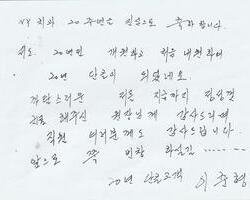 YY 치과 20주년을 진심으로 축하합니다.
저도 20년전 개원하고 처음 내원하여
20년 단골이 되었네요.
까탈스러운 저를 지금까지 정성껏
치료 해주신 원장님께 감사드리며
직원 여러분께도 감사드립니다.
앞으로 쭉 번창 하실길 ......
20년 단골고객 이중형